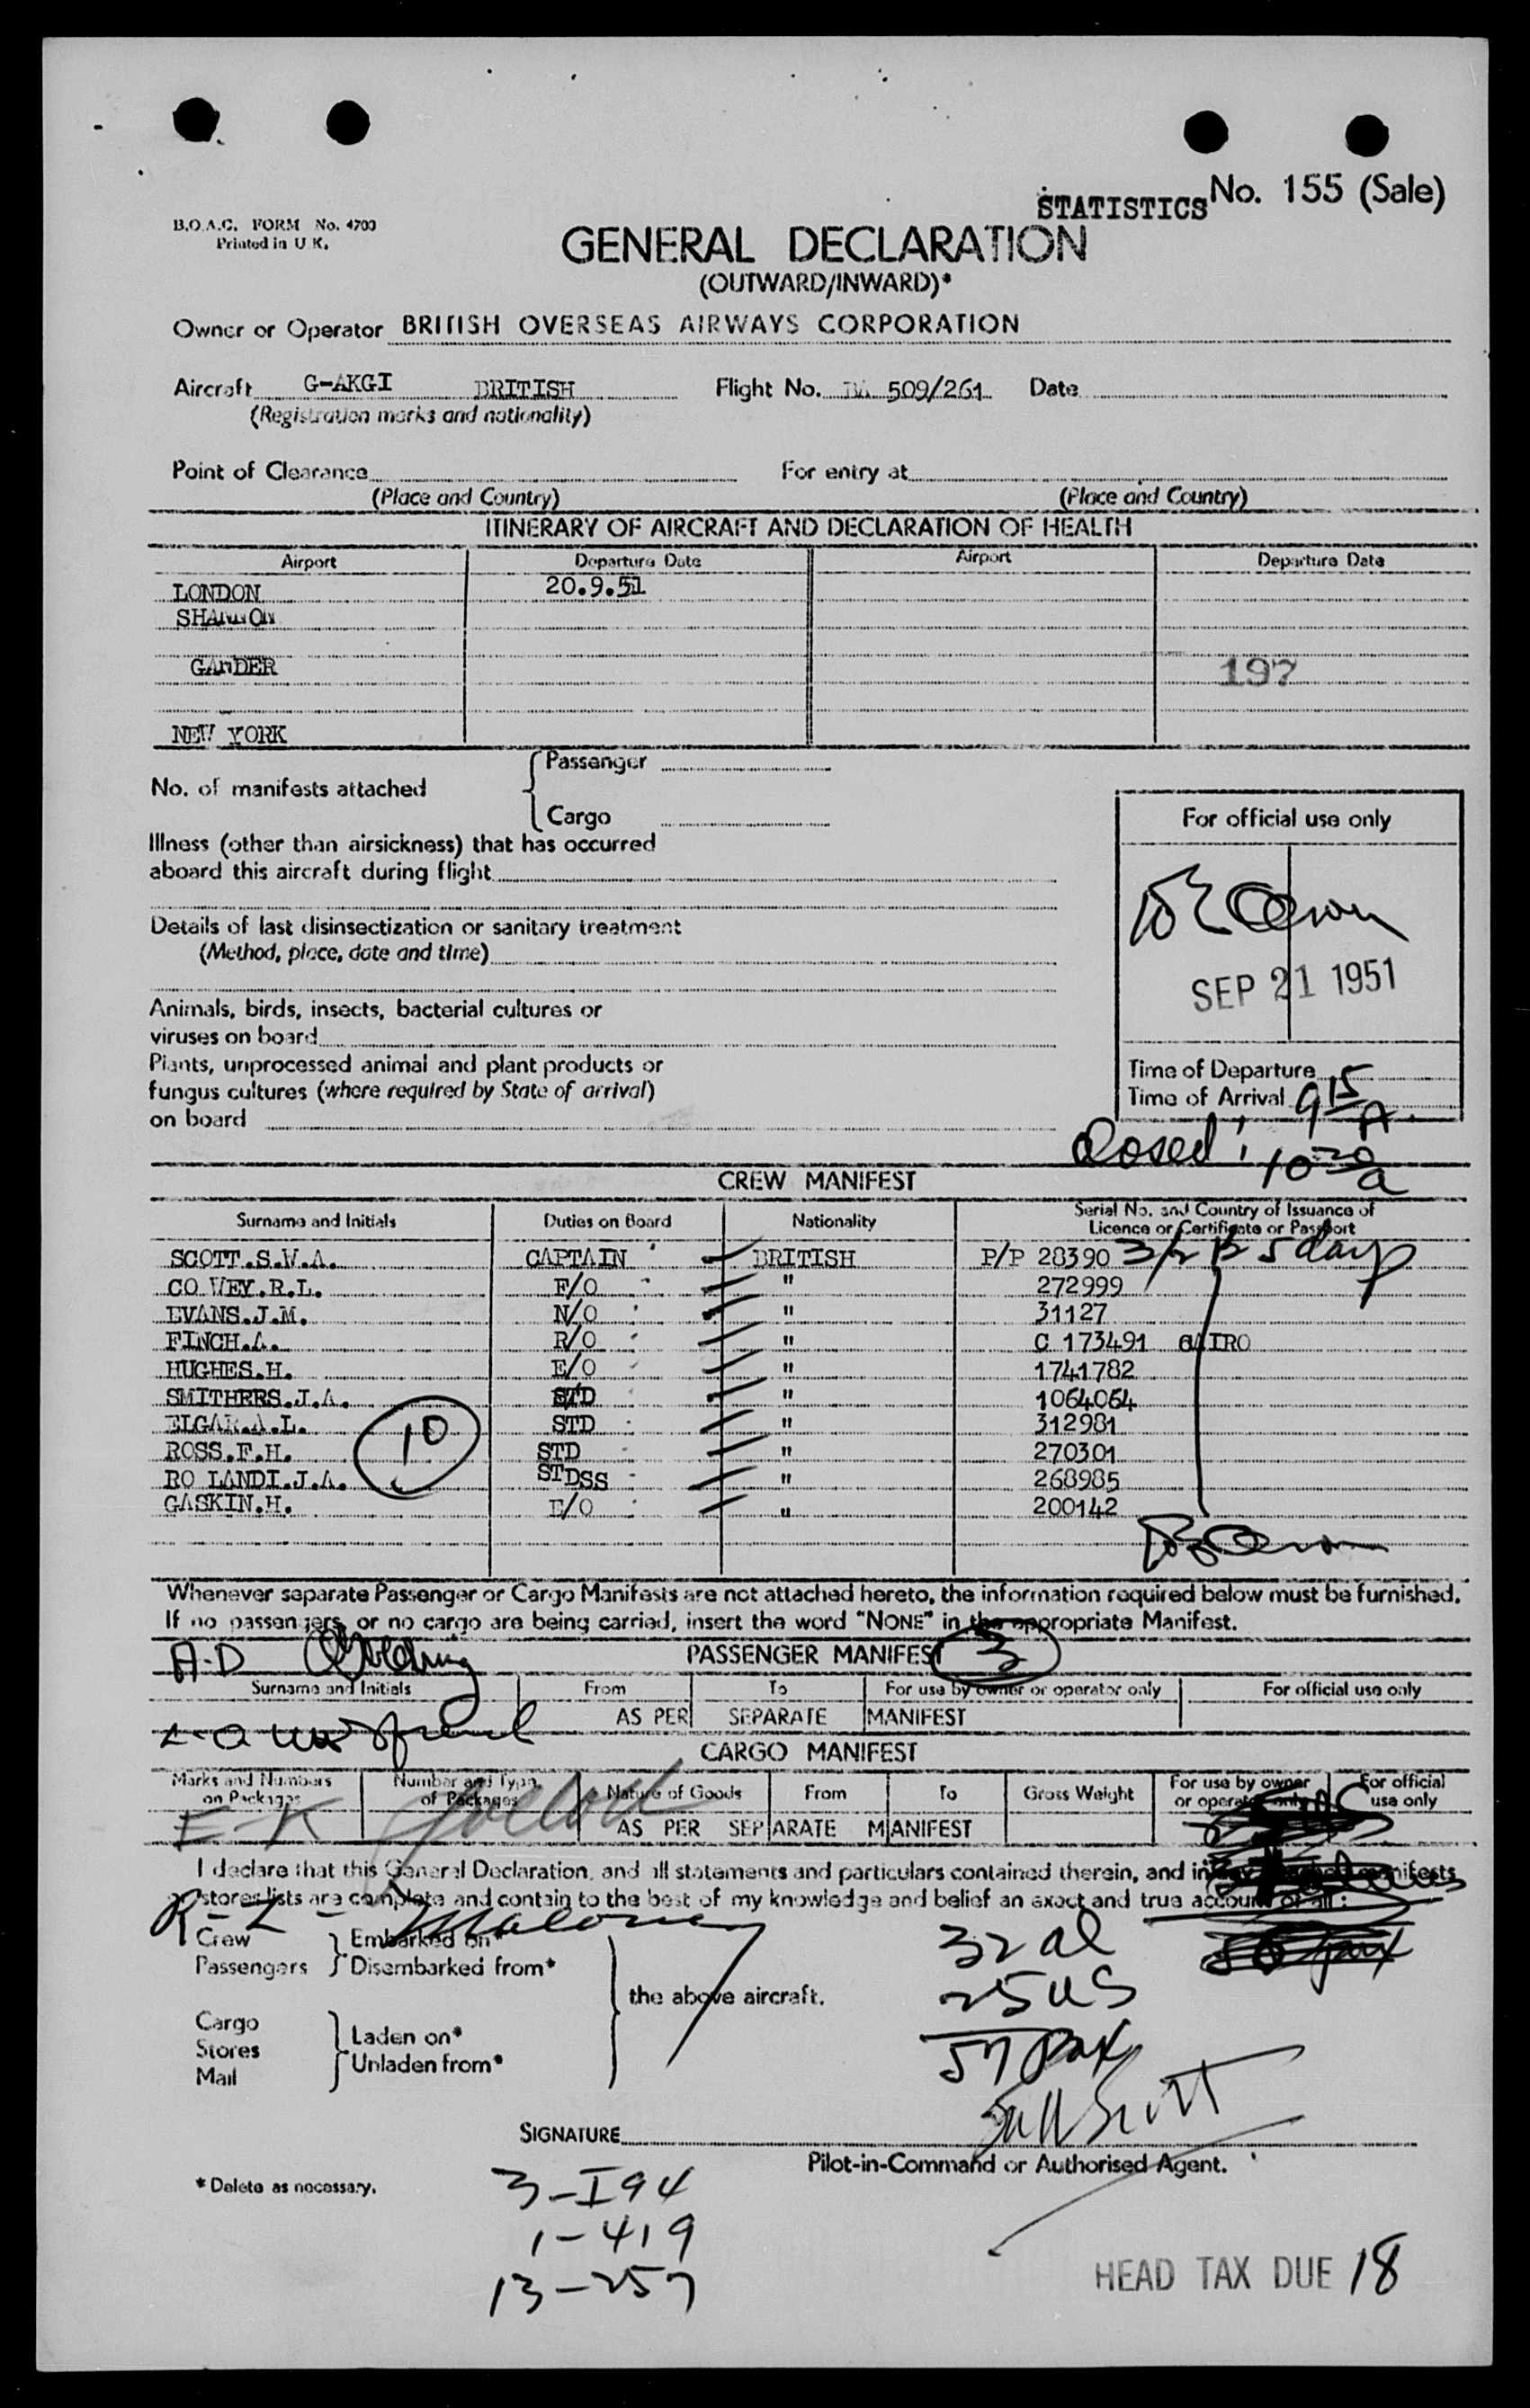 STATISTICS No. 155 (Sale)
B.O.A.C. FORM No. 4703
Printed in U.K.
GENERAL DECLARATION
(OUTWARD/INWARD)*
Owner or Operator BRITISH OVERSEAS AIRWAYS CORPORATION
Aircraft G-AKGI BRITISH Flight No. BA 509/261 Date
(Registration marks and nationality)
Point of Clearance For entry at
(Place and Country) (Place and Country)
ITINERARY OF AIRCRAFT AND DECLARATION OF HEALTH
Airport Departure Date Airport Departure Date
LONDON 20.9.51
SHANNON
GANDER 197
NEW YORK
No. of manifests attached Passenger
Cargo
For official use only
Illness (other than airsickness) that has occurred
aboard this aircraft during flight
Details of last disinsectization or sanitary treatment
(Method, place, date and time)
SEP 21 1951
Animals, birds, insects, bacterial cultures or
viruses on board
Plants, unprocessed animal and plant products or
fungus cultures (where required by State of arrival)
on board
Time of Departure
Time of Arrival 9 15 A
Closed! 10 30 a
CREW MANIFEST
Surname and Initials Duties on Board Nationality Serial No. and Country of Issuance of
Licence or Certificate or Passport
SCOTT.S.W.A. CAPTAIN BRITISH P/P 28390 5 days
CO WEY.R.L. F/O " 272999
EVANS.J.M. N/O " 31127
FINCH.A. R/O " C 173491 CAIRO
HUGHES.H. E/O " 1741782
SMITHERS.J.A. STD " 1064064
ELGAR.A.L. STD " 312981
ROSS.F.H. STD " 270301
RO LANDI.J.A. STDSS " 268985
GASKIN.H. E/O " 200142
10
Whenever separate Passenger or Cargo Manifests are not attached hereto, the information required below must be furnished.
If no passengers, or no cargo are being carried, insert the word "NONE" in the appropriate Manifest.
A.D PASSENGER MANIFEST 3
Surname and Initials From To For use by owner or operator only For official use only
AS PER SEPARATE MANIFEST
CARGO MANIFEST
Marks and Numbers on Packages Number and Type of Packages Nature of Goods From To Gross Weight For use by owner or operator only For official use only
E-K
AS PER SEPARATE MANIFEST
I declare that this General Declaration, and all statements and particulars contained therein, and in any manifests
stores lists are complete and contain to the best of my knowledge and belief an exact and true account of all:
R-Z- Maloney
Crew Embarked on*
Passengers Disembarked from*
the above aircraft.
Cargo
Stores Laden on*
Mail Unladen from*
32 al
25 US
57 pax
SWA Scott
SIGNATURE
Pilot-in-Command or Authorised Agent.
* Delete as necessary.
3-I94
1-419
13-257
HEAD TAX DUE 18